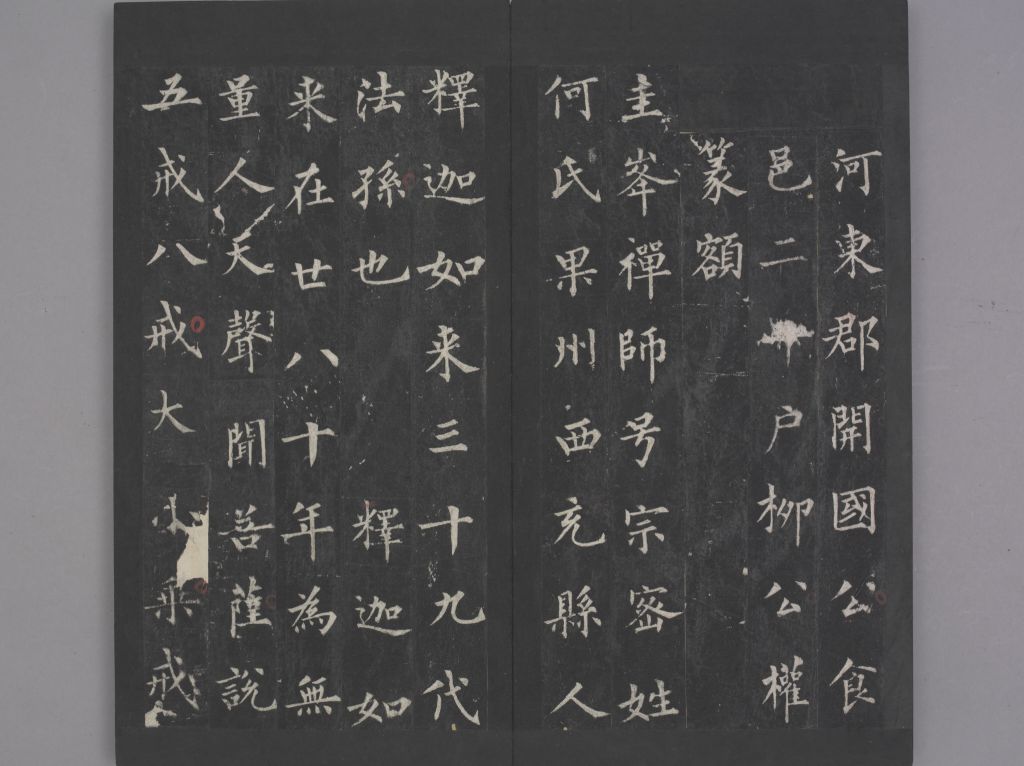 河東郡開國公食
邑二千户柳公權
篆額
圭峯禪師号宗密姓
何氏果州西充縣人
釋迦如来三十九代
法孫也釋迦如
来在世八十年為無
量人天聲聞菩薩說
五戒八戒大小乘戒